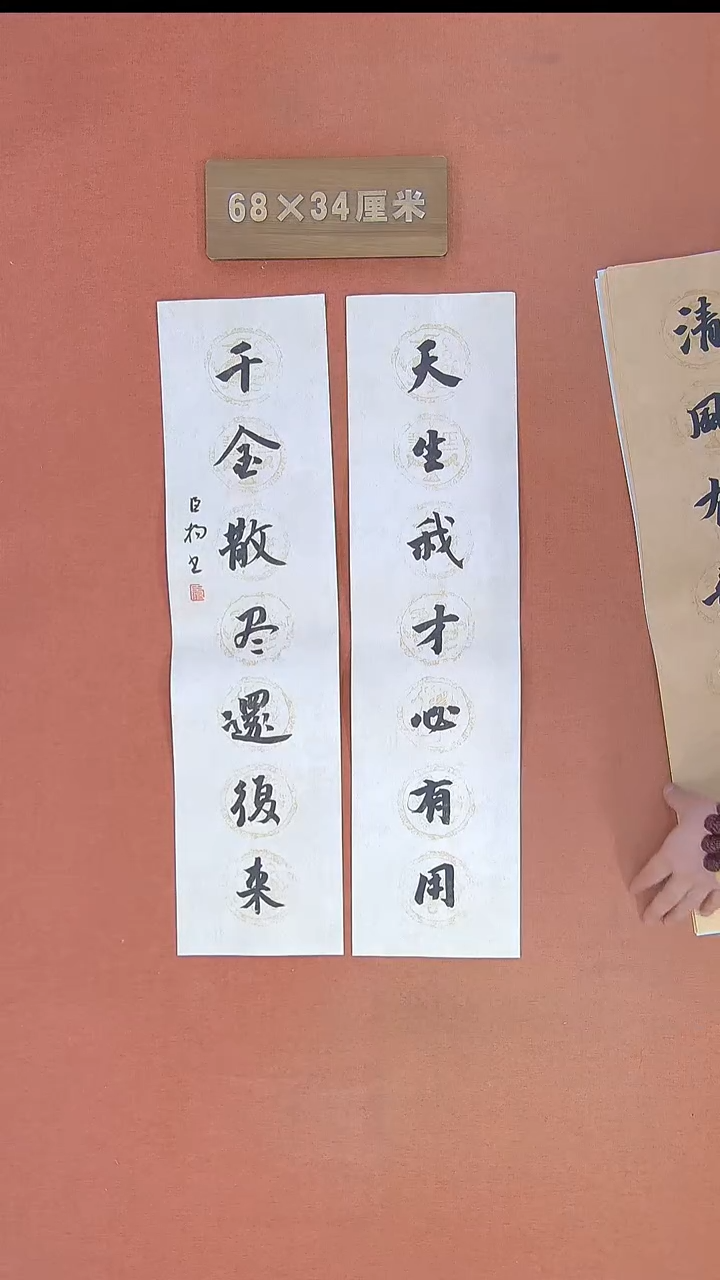 68×34厘米
天生我才必有用
千金散尽還復来
清風